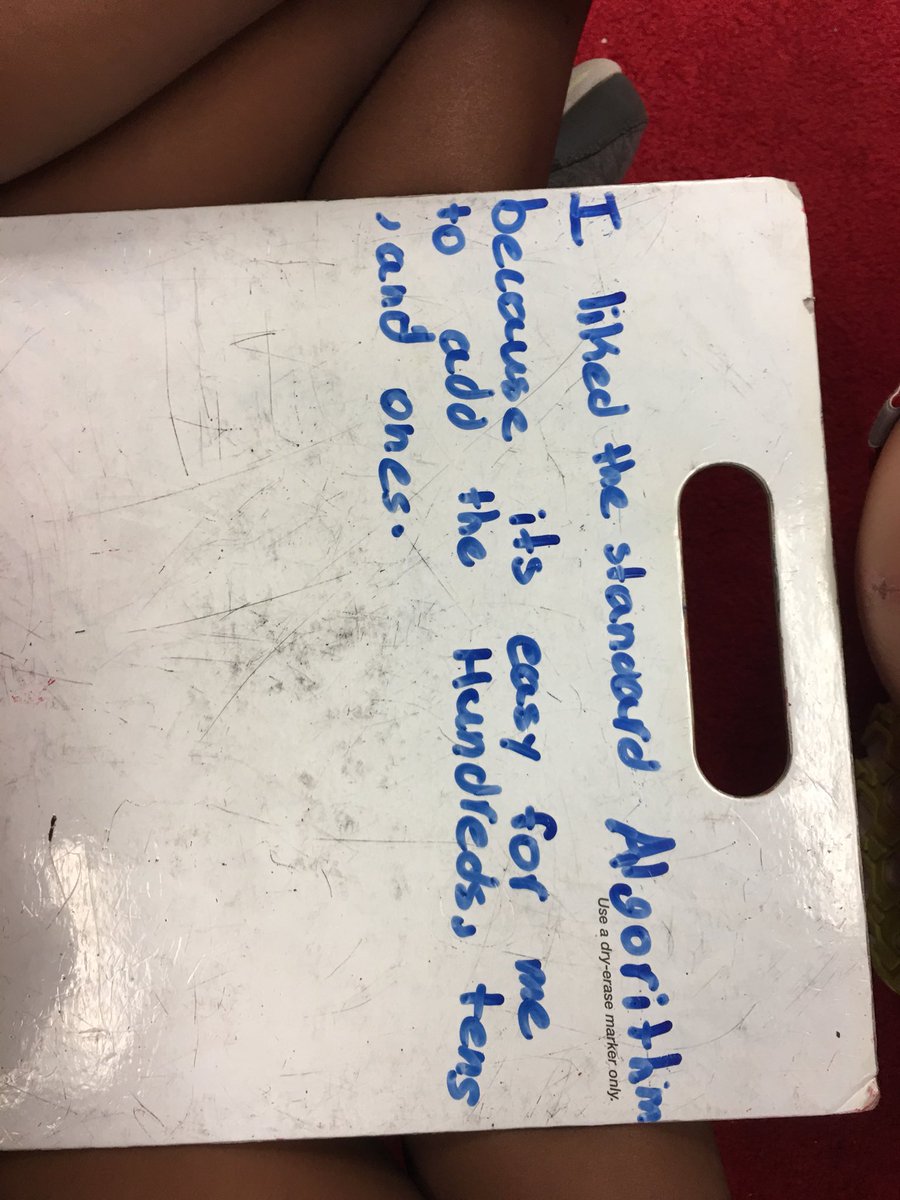 I liked the standard Algorithim
Use a dry-erase marker only.
because its easy for me
to add the Hundreds, tens
, and ones.